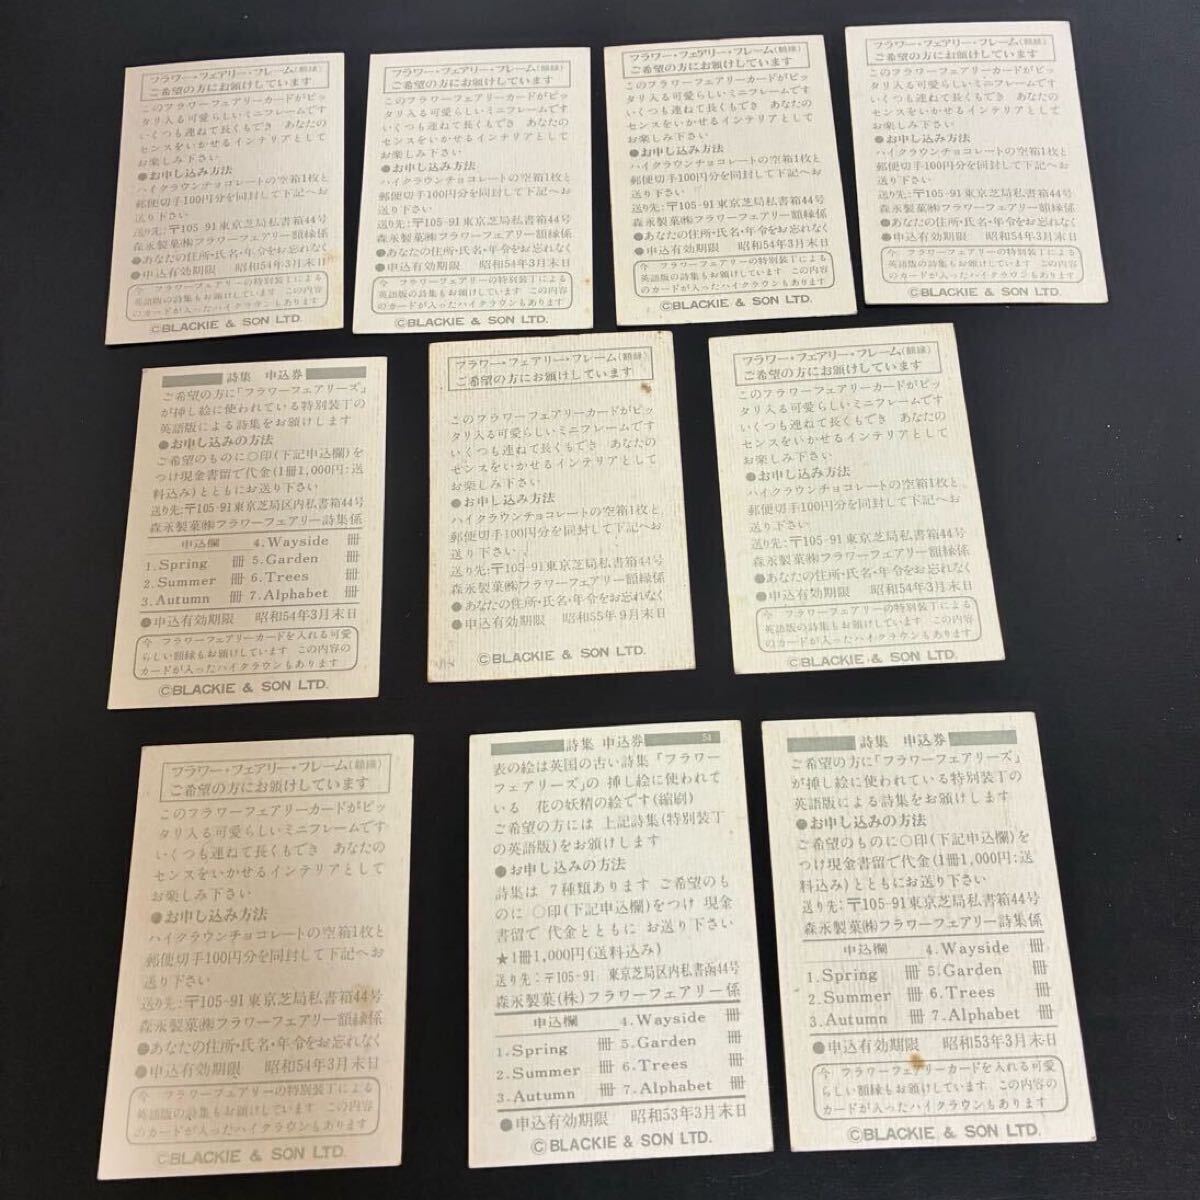 フラワー・フェアリー・フレーム(額縁)
ご希望の方にお頒けしています
このフラワーフェアリーカードがピッ
タリ入る可愛らしいミニフレームです
いくつも連ねて長くもでき あなたの
センスをいかせるインテリアとして
お楽しみ下さい
●お申し込み方法
ハイクラウンチョコレートの空箱1枚と
郵便切手100円分を同封して下記へお
送り下さい
送り先:〒105-91 東京芝局私書箱44号
森永製菓㈱フラワーフェアリー額縁係
●あなたの住所・氏名・年令をお忘れなく
●申込有効期限 昭和54年3月末日
今 フラワーフェアリーの特別装丁による
英語版の詩集もお頒けしています この内容
のカードが入ったハイクラウンもあります
©BLACKIE & SON LTD.
フラワー・フェアリー・フレーム(額縁)
ご希望の方にお頒けしています
このフラワーフェアリーカードがピッ
タリ入る可愛らしいミニフレームです
いくつも連ねて長くもでき あなたの
センスをいかせるインテリアとして
お楽しみ下さい
●お申し込み方法
ハイクラウンチョコレートの空箱1枚と
郵便切手100円分を同封して下記へお
送り下さい
送り先:〒105-91 東京芝局私書箱44号
森永製菓㈱フラワーフェアリー額縁係
●あなたの住所・氏名・年令をお忘れなく
●申込有効期限 昭和54年3月末日
今 フラワーフェアリーの特別装丁による
英語版の詩集もお頒けしています この内容
のカードが入ったハイクラウンもあります
©BLACKIE & SON LTD.
フラワー・フェアリー・フレーム(額縁)
ご希望の方にお頒けしています
このフラワーフェアリーカードがピッ
タリ入る可愛らしいミニフレームです
いくつも連ねて長くもでき あなたの
センスをいかせるインテリアとして
お楽しみ下さい
●お申し込み方法
ハイクラウンチョコレートの空箱1枚と
郵便切手100円分を同封して下記へお
送り下さい
送り先:〒105-91 東京芝局私書箱44号
森永製菓㈱フラワーフェアリー額縁係
●あなたの住所・氏名・年令をお忘れなく
●申込有効期限 昭和54年3月末日
今 フラワーフェアリーの特別装丁による
英語版の詩集もお頒けしています この内容
のカードが入ったハイクラウンもあります
©BLACKIE & SON LTD.
フラワー・フェアリー・フレーム(額縁)
ご希望の方にお頒けしています
このフラワーフェアリーカードがピッ
タリ入る可愛らしいミニフレームです
いくつも連ねて長くもでき あなたの
センスをいかせるインテリアとして
お楽しみ下さい
●お申し込み方法
ハイクラウンチョコレートの空箱1枚と
郵便切手100円分を同封して下記へお
送り下さい
送り先:〒105-91 東京芝局私書箱44号
森永製菓㈱フラワーフェアリー額縁係
●あなたの住所・氏名・年令をお忘れなく
●申込有効期限 昭和54年3月末日
今 フラワーフェアリーの特別装丁による
英語版の詩集もお頒けしています この内容
のカードが入ったハイクラウンもあります
©BLACKIE & SON LTD.
詩集 申込券
ご希望の方に「フラワーフェアリーズ」
が挿し絵に使われている特別装丁の
英語版による詩集をお頒けします
●お申し込みの方法
ご希望のものに○印(下記申込欄)を
つけ現金書留で代金(1冊1,000円:送
料込み)とともにお送り下さい
送り先:〒105-91東京芝局区内私書箱44号
森永製菓㈱フラワーフェアリー詩集係
申込欄 4.Wayside 冊
1.Spring 冊 5.Garden 冊
2.Summer 冊 6.Trees 冊
3.Autumn 冊 7.Alphabet 冊
●申込有効期限 昭和54年3月末日
今 フラワーフェアリーカードを入れる可愛
らしい額縁もお頒けしています この内容の
カードが入ったハイクラウンもあります
©BLACKIE & SON LTD.
フラワー・フェアリー・フレーム(額縁)
ご希望の方にお頒けしています
このフラワーフェアリーカードがピッ
タリ入る可愛らしいミニフレームです
いくつも連ねて長くもでき あなたの
センスをいかせるインテリアとして
お楽しみ下さい
●お申し込み方法
ハイクラウンチョコレートの空箱1枚と
郵便切手100円分を同封して下記へお
送り下さい
送り先:〒105-91 東京芝局私書箱44号
森永製菓㈱フラワーフェアリー額縁係
●あなたの住所・氏名・年令をお忘れなく
●申込有効期限 昭和55年9月末日
©BLACKIE & SON LTD.
フラワー・フェアリー・フレーム(額縁)
ご希望の方にお頒けしています
このフラワーフェアリーカードがピッ
タリ入る可愛らしいミニフレームです
いくつも連ねて長くもでき あなたの
センスをいかせるインテリアとして
お楽しみ下さい
●お申し込み方法
ハイクラウンチョコレートの空箱1枚と
郵便切手100円分を同封して下記へお
送り下さい
送り先:〒105-91 東京芝局私書箱44号
森永製菓㈱フラワーフェアリー額縁係
●あなたの住所・氏名・年令をお忘れなく
●申込有効期限 昭和54年3月末日
今 フラワーフェアリーの特別装丁による
英語版の詩集もお頒けしています この内容
のカードが入ったハイクラウンもあります
©BLACKIE & SON LTD.
フラワー・フェアリー・フレーム(額縁)
ご希望の方にお頒けしています
このフラワーフェアリーカードがピッ
タリ入る可愛らしいミニフレームです
いくつも連ねて長くもでき あなたの
センスをいかせるインテリアとして
お楽しみ下さい
●お申し込み方法
ハイクラウンチョコレートの空箱1枚と
郵便切手100円分を同封して下記へお
送り下さい
送り先:〒105-91 東京芝局私書箱44号
森永製菓㈱フラワーフェアリー額縁係
●あなたの住所・氏名・年令をお忘れなく
●申込有効期限 昭和54年3月末日
今 フラワーフェアリーの特別装丁による
英語版の詩集もお頒けしています この内容
のカードが入ったハイクラウンもあります
©BLACKIE & SON LTD.
詩集 申込券 51
表の絵は英国の古い詩集「フラワー
フェアリーズ」の 挿し絵に使われて
いる 花の妖精の絵です(縮刷)
ご希望の方には 上記詩集(特別装丁
の英語版)をお頒けします
●お申し込みの方法
詩集は 7種類あります ご希望のも
のに ○印(下記申込欄)をつけ 現金
書留で 代金とともに お送り下さい
★1冊1,000円(送料込み)
送り先:〒105-91 東京芝局区内私書函44号
森永製菓(株)フラワーフェアリー係
申込欄 4.Wayside 冊
1.Spring 冊 5.Garden 冊
2.Summer 冊 6.Trees 冊
3.Autumn 冊 7.Alphabet 冊
●申込有効期限 昭和53年3月末日
©BLACKIE & SON LTD.
詩集 申込券
ご希望の方に「フラワーフェアリーズ」
が挿し絵に使われている特別装丁の
英語版による詩集をお頒けします
●お申し込みの方法
ご希望のものに○印(下記申込欄)を
つけ現金書留で代金(1冊1,000円:送
料込み)とともにお送り下さい
送り先:〒105-91東京芝局区内私書箱44号
森永製菓㈱フラワーフェアリー詩集係
申込欄 4.Wayside 冊
1.Spring 冊 5.Garden 冊
2.Summer 冊 6.Trees 冊
3.Autumn 冊 7.Alphabet 冊
●申込有効期限 昭和53年3月末日
今 フラワーフェアリーカードを入れる可愛
らしい額縁もお頒けしています この内容の
カードが入ったハイクラウンもあります
©BLACKIE & SON LTD.